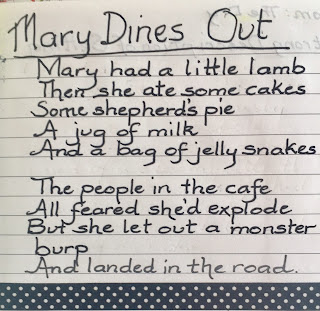 Mary Dines Out
Mary had a little lamb
Then she ate some cakes
Some shepherd's pie
A jug of milk
And a bag of jelly snakes
The people in the cafe
All feared she'd explode
But she let out a monster
burp
And landed in the road.